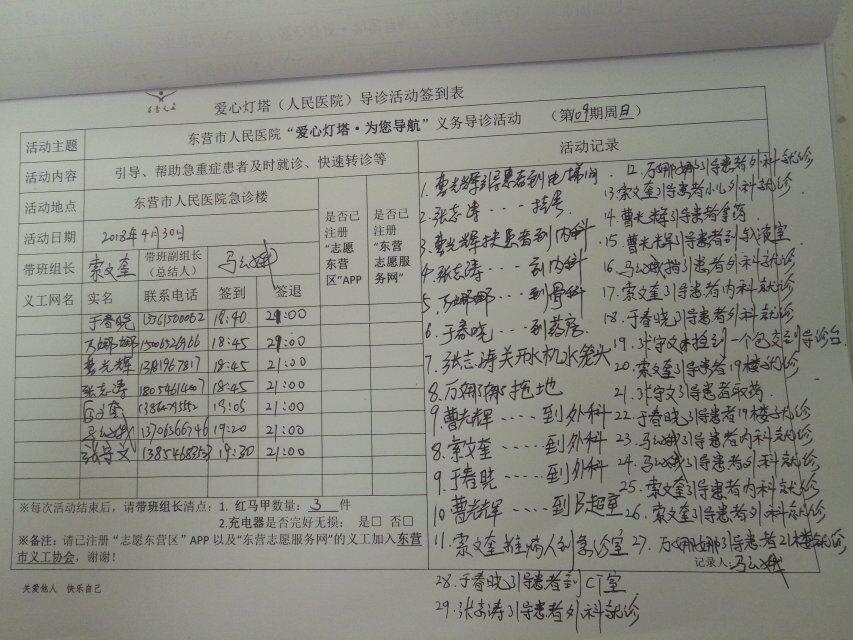 爱心灯塔（人民医院）导诊活动签到表
活动主题 东营市人民医院“爱心灯塔·为您导航”义务导诊活动 （第109期周日）
活动内容 引导、帮助急重症患者及时就诊、快速转诊等
活动地点 东营市人民医院急诊楼
活动日期 2018年4月30日
带班组长 索文奎 带班副组长（总结人）
是否已注册“志愿东营区”APP
是否已注册“东营志愿服务网”
义工网名 实名 联系电话 签到 签退
于春晓 18:40 21:00
万娜娜 15006526966 18:45 21:00
曹光辉 18:45 21:00
张志涛 18:45 21:00
19:05 21:00
13706366746 19:20 21:00
张守文 19:30 21:00
※每次活动结束后，请带班组长清点：1. 红马甲数量： 3 件
2.充电器是否完好无损： 是□ 否□
※备注：请已注册“志愿东营区”APP 以及“东营志愿服务网”的义工加入东营市义工协会，谢谢！
关爱他人 快乐自己
活动记录
1. 曹光辉引导患者到电梯间
2. 张志涛 ···· 挂号
3. 曹光辉扶患者到内科
4. 张志涛 ···· 到内科
5. 万娜娜 ···· 到骨科
6. 于春晓 ···· 到药房
7. 张志涛关开水机水龙头
8. 万娜娜拖地
9 曹光辉 ···· 到外科
8. 索文奎 ···· 到内科
9. 于春晓 ···· 到外科
10 曹光辉 ···· 到B超室
11. 索文奎推病人到急诊室
12. 万娜娜引导患者外科就诊
13. 索文奎引导患者小儿外科就诊
14. 曹光辉引导患者拿药
15. 曹光辉引导患者到输液室
16. 引导患者外科就诊
17. 索文奎引导患者内科就诊
18. 于春晓引导患者外科就诊
19. 张守文捡到一个包交到导诊台
20. 索文奎引导患者19楼就诊
21. 张守文引导患者取药
22. 于春晓引导患者19楼就诊
23. 引导患者内科就诊
24. 引导患者外科就诊
25. 索文奎引导患者内科就诊
26. 索文奎引导患者外科就诊
27. 万娜娜引导患者21楼就诊
28. 于春晓引导患者到CT室
29. 张志涛引导患者外科就诊
记录人：